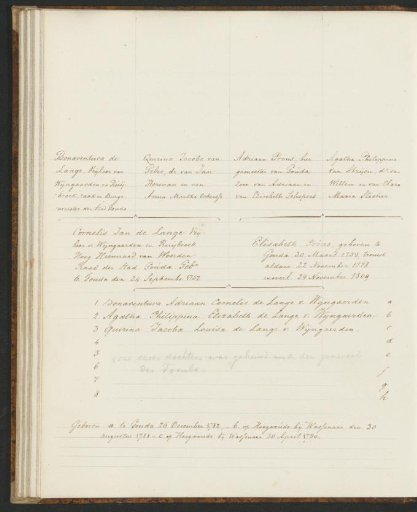 Bonaventura de
Lange, Vrijheer van
Wijngaarden en Ruij-
broek, raad en Burge-
meester der Stad Gouda
Quirina Jacoba van
dr. van Jan
Herman en van
Anna
Adriaan Prins, bur
gemeester van Gouda
Zoon van Adriaan en
van Elisabeth
Agatha Philippina
van Strijen, dr. van
Willem en van Clara
Maria
Cornelis Jan de Lange Vrij
heer v. Wijngaarden en Ruijbroek
Hoog Heemraad van Woerden
Raad der Stad Gouda Geb.
te Gouda den 24 September 1752
Elisabeth Prins, geboren te
Gouda 20 Maart 1759, trouwt
aldaar 22 November 1778
overl. 24 November 1804
1 Bonaventura Adriaan Cornelis de Lange v. Wijngaarden a
2 Agatha Philippina Elisabeth de Lange v. Wijngaarden b
3 Quirina Jacoba Louisa de Lange v. Wijngaarden c
4 d
5 dezer dochters was gehuwd met den generaal e
6 f
7 g
8 h
Geboren a. te Gouda 20 December 1782 – b. op Hoogwoude bij Wassenaar den 30
Augustus 1788 – c. op Hoogwoude bij Wassenaar 20 April 1790.